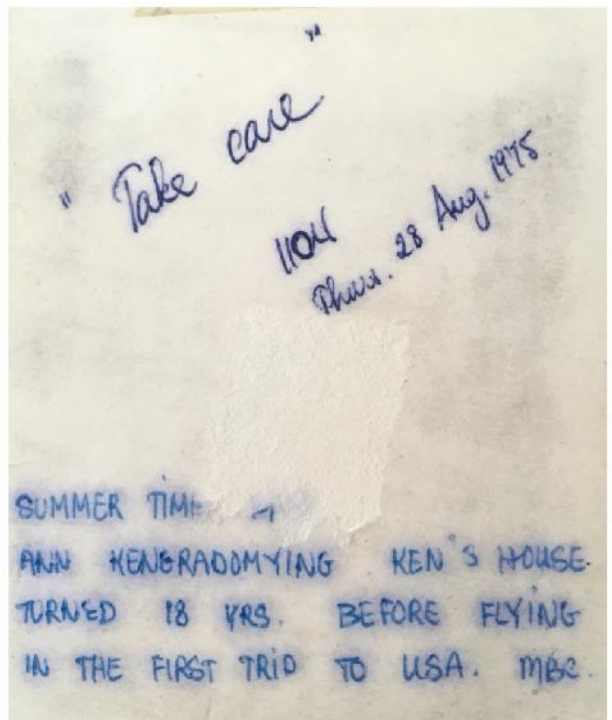 " Take care "
1104
Thurs. 28 Aug. 1975
SUMMER TIME
ANN KENGRADOMYING KEN'S HOUSE.
TURNED 18 YRS. BEFORE FLYING
IN THE FIRST TRIP TO USA. MBC.